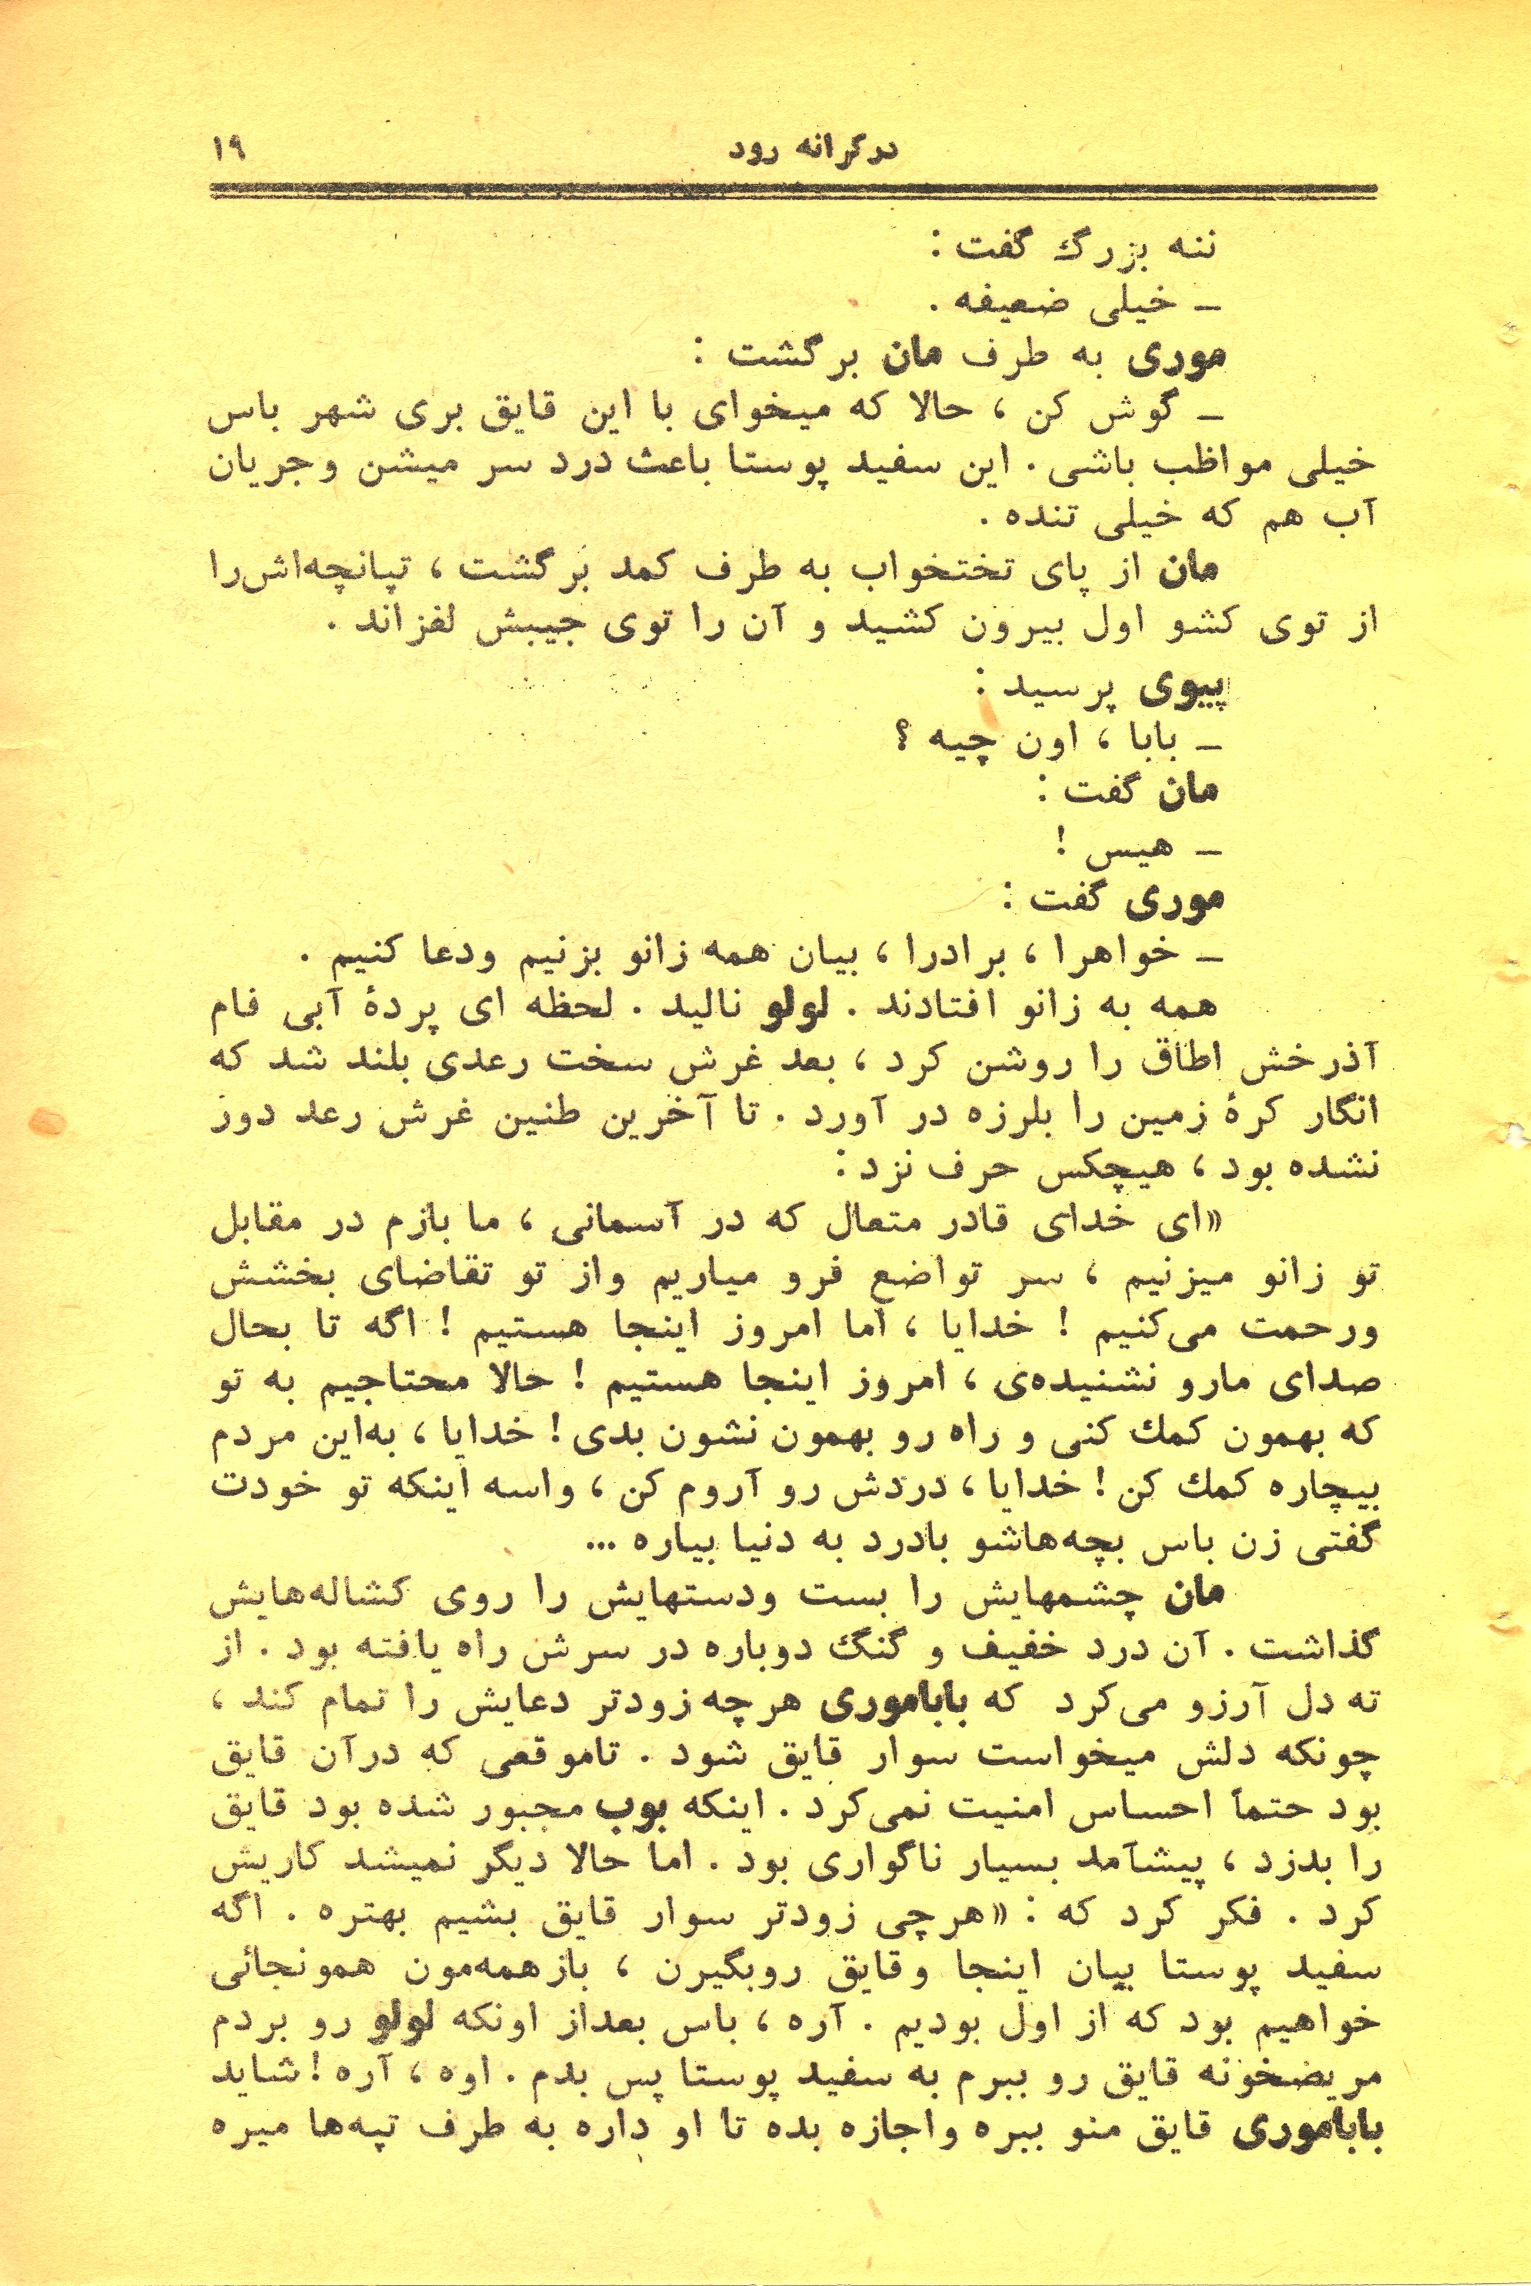 درکرانه رود ۱۹
ننه بزرگ گفت :
ـ خیلی ضعیفه .
موری به طرف مان برگشت :
ـ گوش کن ، حالا که میخوای با این قایق بری شهر باس
خیلی مواظب باشی . این سفید پوستا باعث درد سر میشن وجریان
آب هم که خیلی تنده .
مان از پای تختخواب به طرف کمد برگشت ، تپانچه‌اش‌را
از توی کشو اول بیرون کشید و آن را توی جیبش لغزاند .
پیوی پرسید :
ـ بابا ، اون چیه ؟
مان گفت :
ـ هیس !
موری گفت :
ـ خواهرا ، برادرا ، بیان همه زانو بزنیم ودعا کنیم .
همه به زانو افتادند . لولو نالید . لحظه ای پردۀ آبی فام
آذرخش اطاق را روشن کرد ، بعد غرش سخت رعدی بلند شد که
انگار کرۀ زمین را بلرزه در آورد . تا آخرین طنین غرش رعد دور
نشده بود ، هیچکس حرف نزد :
«ای خدای قادر متعال که در آسمانی ، ما بازم در مقابل
تو زانو میزنیم ، سر تواضع فرو میاریم واز تو تقاضای بخشش
ورحمت می‌کنیم ! خدایا ، اما امروز اینجا هستیم ! اگه تا بحال
صدای مارو نشنیده‌ی ، امروز اینجا هستیم ! حالا محتاجیم به تو
که بهمون کمك کنی و راه رو بهمون نشون بدی ! خدایا ، به‌این مردم
بیچاره کمك کن ! خدایا ، دردش رو آروم کن ، واسه اینکه تو خودت
گفتی زن باس بچه‌هاشو بادرد به دنیا بیاره ...
مان چشمهایش را بست ودستهایش را روی کشاله‌هایش
گذاشت . آن درد خفیف و گنگ دوباره در سرش راه یافته بود . از
ته دل آرزو می‌کرد که باباموری هرچه زودتر دعایش را تمام کند ،
چونکه دلش میخواست سوار قایق شود . تاموقعی که درآن قایق
بود حتماً احساس امنیت نمی‌کرد . اینکه بوب مجبور شده بود قایق
را بدزد ، پیشآمد بسیار ناگواری بود . اما حالا دیگر نمیشد کاریش
کرد . فکر کرد که : «هرچی زودتر سوار قایق بشیم بهتره . اگه
سفید پوستا بیان اینجا وقایق روبگیرن ، بازهمه‌مون همونجائی
خواهیم بود که از اول بودیم . آره ، باس بعداز اونکه لولو رو بردم
مریضخونه قایق رو ببرم به سفید پوستا پس بدم . اوه ، آره ! شاید
باباموری قایق منو ببره واجازه بده تا او داره به طرف تپه‌ها میره